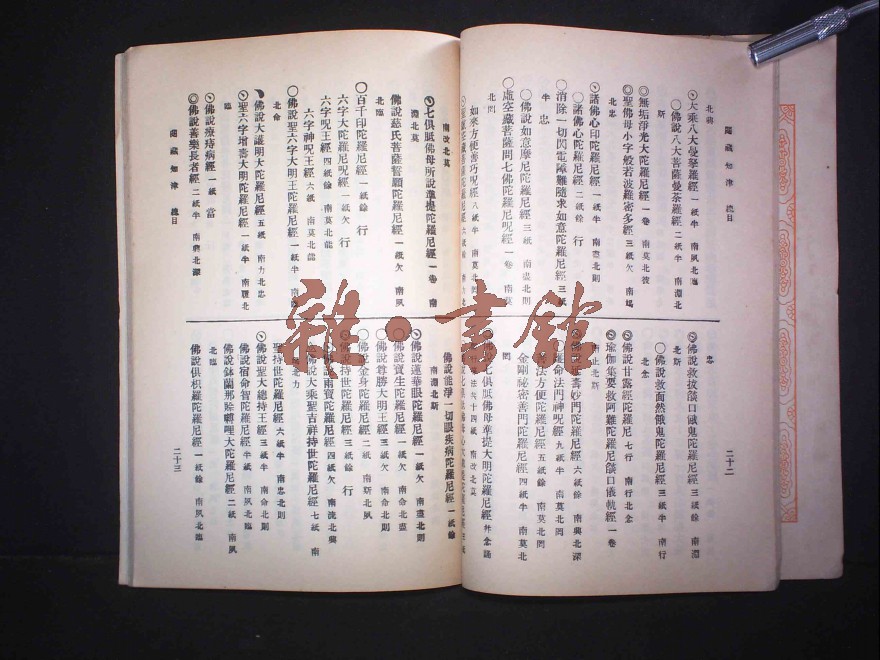 閱藏知津 總目
◎大乘八大曼拏羅經 一紙半 南夙北臨
〇佛說八大菩薩曼荼羅經 二紙半 南淵北
斯
無垢淨光大陀羅尼經 一卷 南莫北彼
◎聖佛母小字般若波羅密多經 三紙欠 南竭
北忠
諸佛心印陀羅尼經 一紙半 南盡北則
〇諸佛心陀羅尼經 二紙餘 行
消除一切閃電障難隨求如意陀羅尼經 三紙
半 忠
〇佛說如意摩尼陀羅尼經 三紙 南盡北則
〇虛空藏菩薩問七佛陀羅尼咒經 一卷 南莫
北罔
如來方便善巧咒經 八紙半 南莫北罔
忠
佛說救拔燄口餓鬼陀羅尼經 三紙餘 南淵
北斯
〇佛說救面然餓鬼陀羅尼經 三紙半 南行
北念
佛說甘露經陀羅尼 七行 南行北念
瑜伽集要救阿難陀羅尼燄口儀軌經 一卷
南止北斯
壽妙門陀羅尼經 六紙餘 南興北深
命法門神咒經 九紙半 南莫北罔
法方便陀羅尼經 五紙餘 南莫北罔
金剛祕密善門陀羅尼經 四紙半 南莫北
罔
七俱胝佛母準提大明陀羅尼經 并念誦
法 六十四紙 南改北莫
二十二
南改北莫
七俱胝佛母所說準提陀羅尼經 一卷 南
淵北莫
佛說慈氏菩薩誓願陀羅尼經 一紙欠 南夙
北臨
〇百千印陀羅尼經 一紙餘 行
六字大陀羅尼咒經 一紙欠 行
六字咒王經 四紙餘 南莫北能
六字神咒王經 六紙 南莫北能
〇佛說聖六字大明王陀羅尼經 一紙半
北命
佛說大護明大陀羅尼經 五紙 南力北忠
聖六字增壽大明陀羅尼經 一紙半 南履北
臨
佛說療痔病經 一紙 當
◎佛說善樂長者經 二紙半 南興北深
閱藏知津 總目
佛說能淨一切眼疾病陀羅尼經 一紙餘
南淵北斯
佛說蓮華眼陀羅尼經 一紙欠 南盡北則
〇佛說寶生陀羅尼經 一紙欠 南命北盡
〇佛說尊勝大明王經 三紙半 南命北則
〇佛說金身陀羅尼經 二紙 南斯北夙
佛說持世陀羅尼經 三紙餘 行
佛說雨寶陀羅尼經 四紙半 南流北興
佛說大乘聖吉祥持世陀羅尼經 七紙 南
北力
聖持世陀羅尼經 六紙半 南忠北則
佛說聖大總持王經 三紙半 南命北則
佛說宿命智陀羅尼經 半紙 南夙北臨
佛說鉢蘭那賒嚩哩大陀羅尼經 二紙 南夙
北臨
佛說俱枳羅陀羅尼經 一紙餘 南夙北臨
二十三
雜·書館